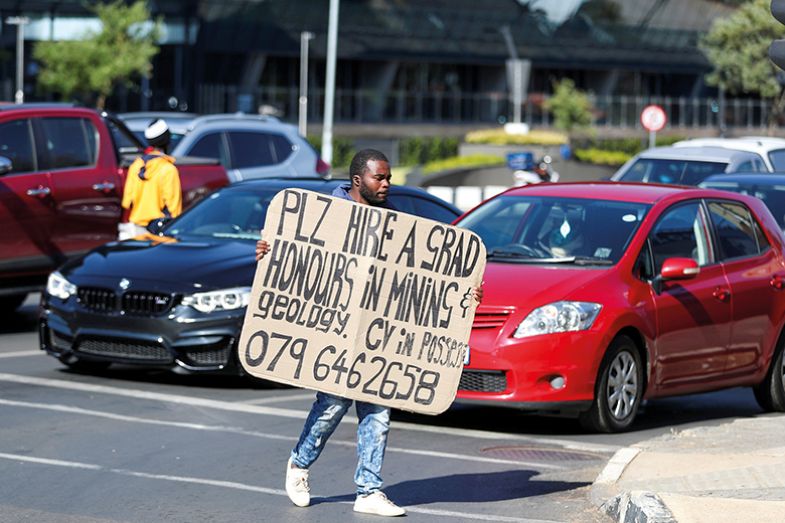 PLZ HIRE A GRAD
HONOURS IN MINING &
geology. CV in POSSES
079 6462658